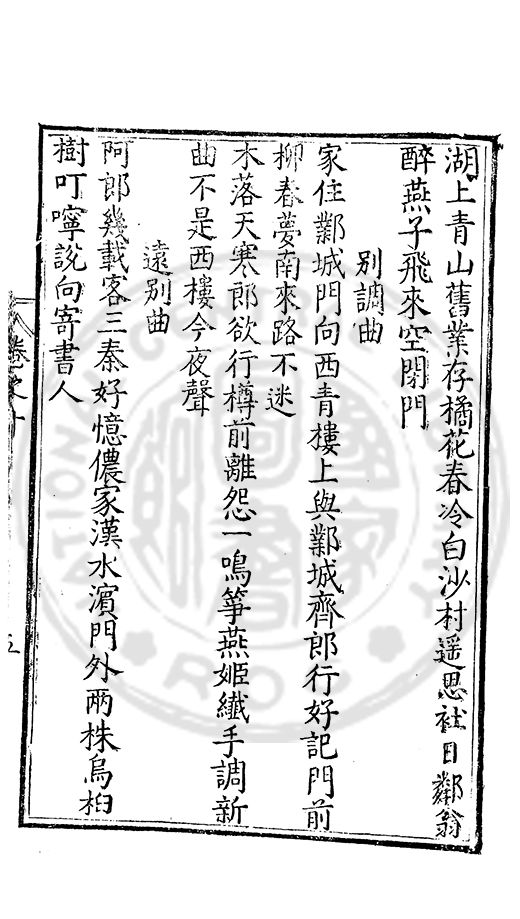 湖上青山舊業存橘花春冷白沙村遥思社日鄰翁
醉燕子飛來空閉門
別調曲
家住鄴城門向西青樓上與鄴城齊郎行好記門前
柳春夢南來路不迷
木落天寒郎欲行樽前離怨一鳴箏燕姬纖手調新
曲不是西樓今夜聲
遠別曲
阿郎幾載客三秦好憶儂家漢水濱門外兩株烏桕
樹叮嚀說向寄書人